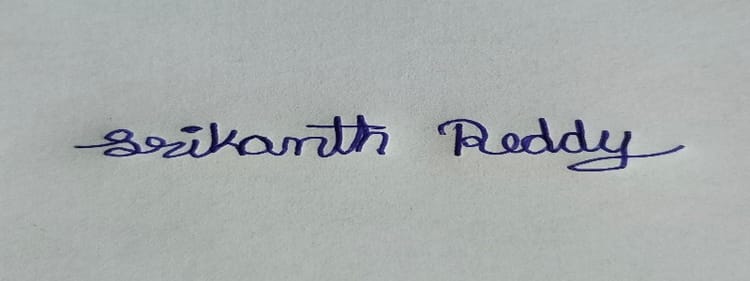 Srikanth Reddy